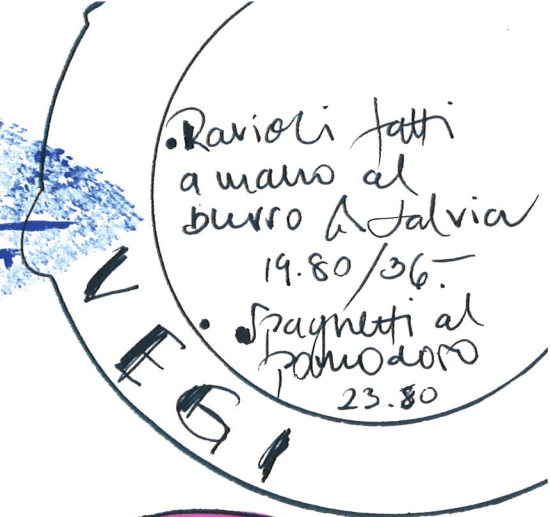 • Ravioli fatti
a mano al
burro & salvia
19.80/36.-
• Spaghetti al
pomodoro
23.80
VEGI